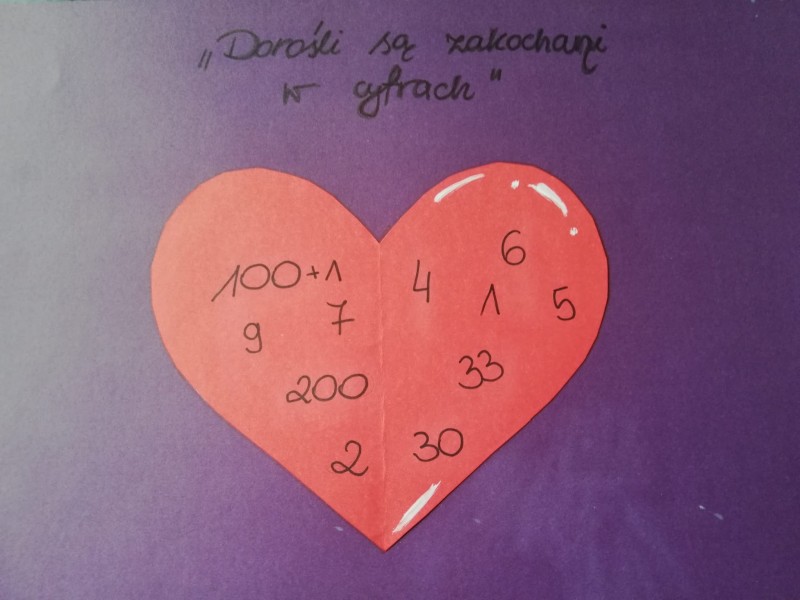 „Dorośli są zakochani
w cyfrach"
6
100+1 4
1 5
9 7
33
200
30
2